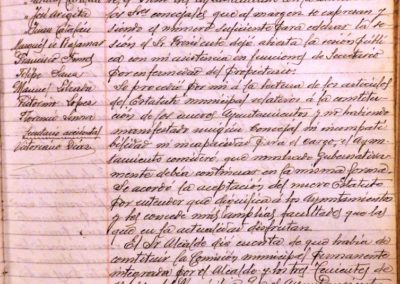 José Argita
Juan
Manuel de
Francisco
Felipe Sanz
Manuel
Victorian López
Florencio
Secretario accidental
Victoriano Díaz
los Sres concejales que al margen se expresan y
siendo el momento señalado para celebrar la se-
sión el Sr Presidente dijo abierta la sesión pública
con mi asistencia en funciones de Secretario
por enfermedad del Propietario.
Se procedió por mí á la lectura de los artículos
del Estatuto municipal relativos a la constitu-
ción de los nuevos Ayuntamientos y no habiendo
manifestado ningún Concejal su incompati-
bilidad ni incapacidad para el cargo, el ayun-
tamiento consideró, que nombrado gubernativa-
mente debía continuar en la misma forma.
Se acordó la aceptación del nuevo Estatuto
por entender que dignifica á los Ayuntamientos
y les concede mas amplias facultades que las
que en la actualidad disfrutan.
El Sr Alcalde dió cuenta de que había de
constituir la Comisión municipal permanente
integrada por el Alcalde y los tres Tenientes de